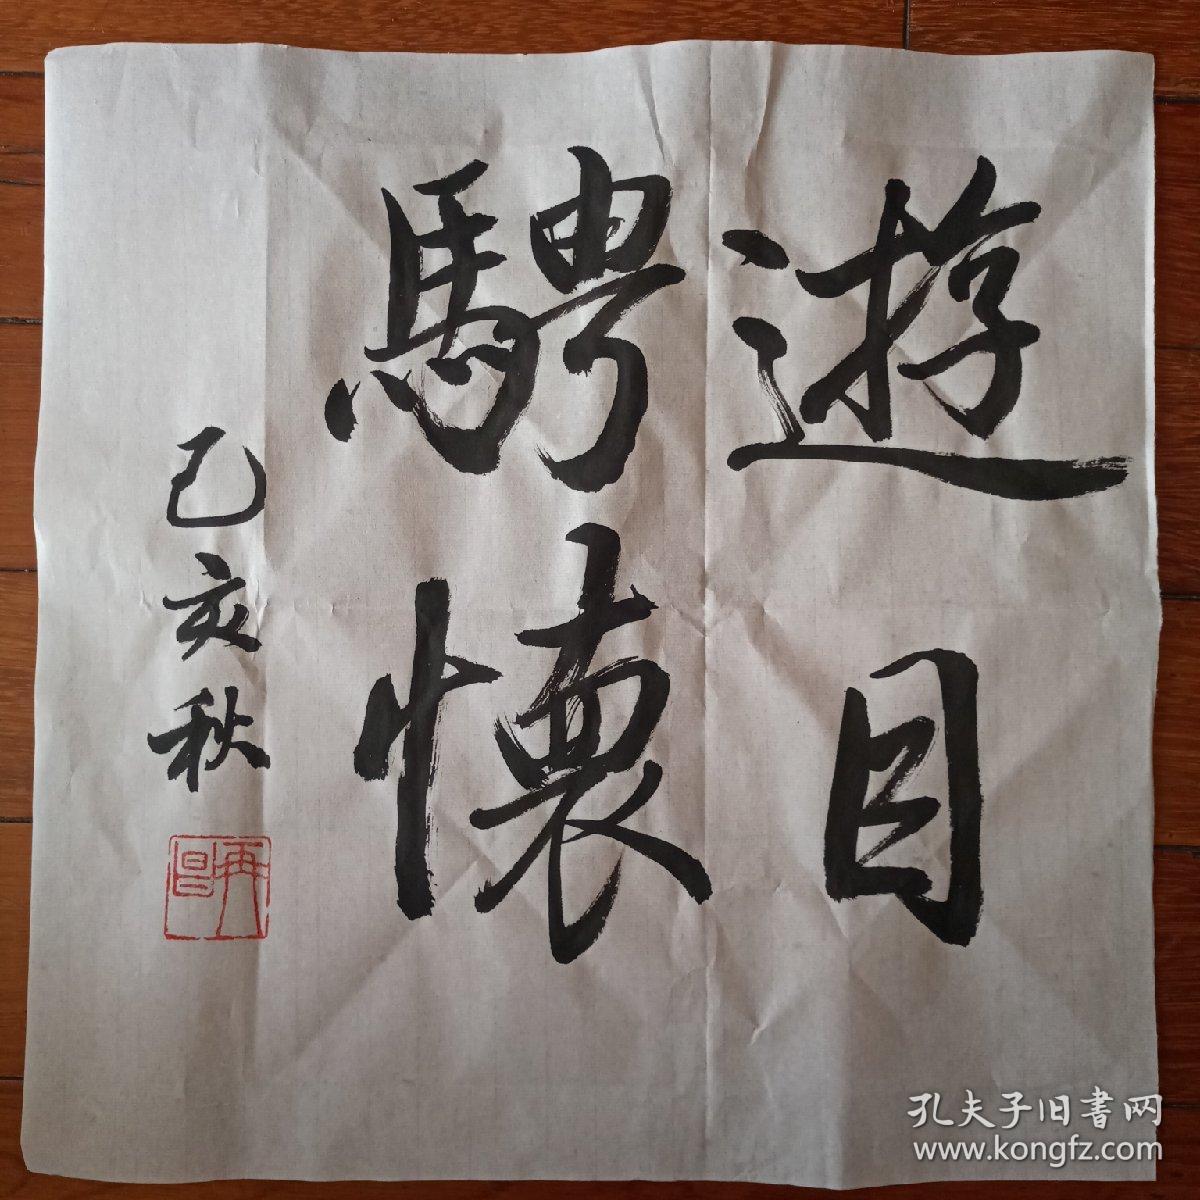 遊目
騁懷
己亥秋
孔夫子旧書网
www.kongfz.com